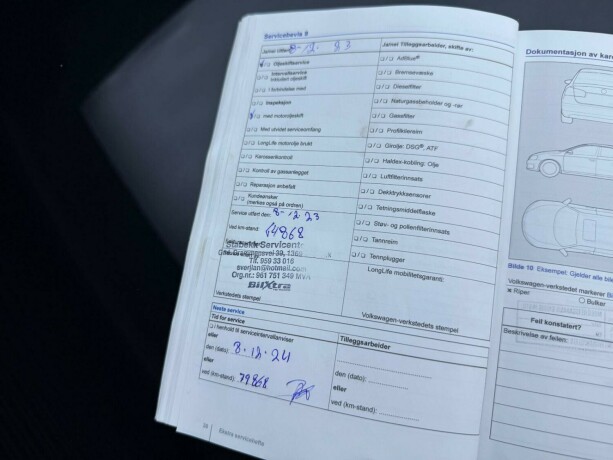 Servicebevis 8
Ja/nei Utført 8-12.23
Ja/nei Tilleggsarbeider, skifte av:
Oljeskiftservice
Intervallservice
inkludert oljeskift
I forbindelse med
Inspeksjon
med motoroljeskift
Med utvidet serviceomfang
LongLife motorolje brukt
Karosserikontroll
Kontroll av gassanlegget
Reparasjon anbefalt
Kundeønsker
(merkes også på ordren)
AdBlue®
Bremsevæske
Dieselfilter
Naturgassbeholder og -rør
Gassfilter
Profilkilereim
Girolje: DSG®, ATF
Haldex-kobling: Olje
Luftfilterinnsats
Dekktrykksensorer
Tetningsmiddelflaske
Støv- og pollenfilterinnsats
Tannreim
Tennplugger
Service utført den: 8-12 23
Ved km-stand: 64868
Tlf. 959 33 016
sverjian@hotmail.com
Org.nr.: 961 751 349 MVA
BilXtra
Verkstedets stempel
LongLife mobilitetsgaranti:
Volkswagen-verkstedets stempel
Neste service
Tid for service
I henhold til serviceintervallanviser
eller
den (dato): 8.12.24
eller
ved (km-stand): 79868
Tilleggsarbeider
den (dato):
eller
ved (km-stand):
38 Ekstra servicehefte
Dokumentasjon av
Bilde 10 Eksempel: Gjelder alle
Volkswagen-verkstedet markerer
Riper
Bulker
Feil konstatert?
Beskrivelse av feilen: